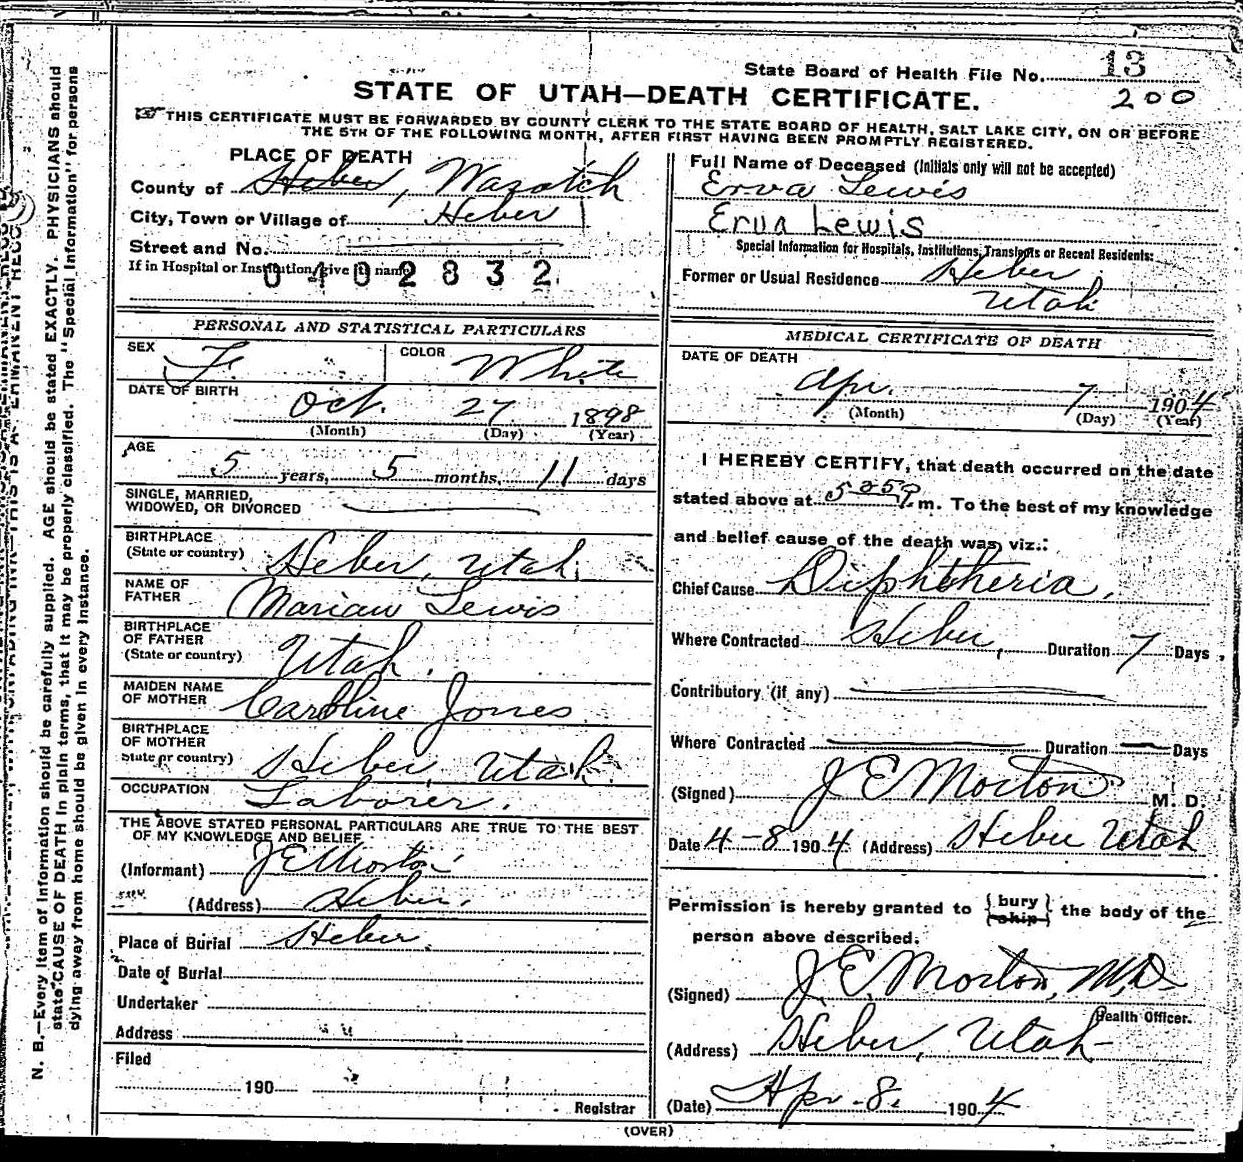 State Board of Health File No. 13
200
STATE OF UTAH—DEATH CERTIFICATE.
THIS CERTIFICATE MUST BE FORWARDED BY COUNTY CLERK TO THE STATE BOARD OF HEALTH, SALT LAKE CITY, ON OR BEFORE
THE 5TH OF THE FOLLOWING MONTH, AFTER FIRST HAVING BEEN PROMPTLY REGISTERED.
PLACE OF DEATH
County of Heber, Wasatch
City, Town or Village of Heber
Street and No.
If in Hospital or Institution, give its name
0402832
Full Name of Deceased (Initials only will not be accepted)
Erva Lewis
Erva Lewis
Special Information for Hospitals, Institutions, Transients or Recent Residents:
Former or Usual Residence Heber
Utah
PERSONAL AND STATISTICAL PARTICULARS
SEX Fe
COLOR White
DATE OF BIRTH
Oct. 27 1898
(Month) (Day) (Year)
AGE
5 years, 5 months, 11 days
SINGLE, MARRIED,
WIDOWED, OR DIVORCED
BIRTHPLACE
(State or country) Heber, Utah.
NAME OF
FATHER Marion Lewis
BIRTHPLACE
OF FATHER
(State or country) Utah.
MAIDEN NAME
OF MOTHER Caroline Jones
BIRTHPLACE
OF MOTHER
State or country) Heber, Utah.
OCCUPATION Laborer.
THE ABOVE STATED PERSONAL PARTICULARS ARE TRUE TO THE BEST
OF MY KNOWLEDGE AND BELIEF
(Informant) J E Morton
(Address) Heber.
Place of Burial Heber.
Date of Burial
Undertaker
Address
Filed
190
Registrar
MEDICAL CERTIFICATE OF DEATH
DATE OF DEATH
Apr. 7 1904
(Month) (Day) (Year)
I HEREBY CERTIFY, that death occurred on the date
stated above at P. m. To the best of my knowledge
and belief cause of the death was, viz.:
Chief Cause Diphtheria.
Where Contracted Heber, Duration 7 Days.
Contributory (if any)
Where Contracted Duration Days
(Signed) J E Morton M. D.
Date 4-8 1904 (Address) Heber Utah
Permission is hereby granted to {bury ship} the body of the
person above described.
(Signed) J. E. Morton, M,D
Health Officer.
(Address) Heber, Utah
(Date) Apr-8. 1904
(OVER)
N. B.—Every item of information should be carefully supplied. AGE should be stated EXACTLY. PHYSICIANS should
state CAUSE OF DEATH in plain terms, that it may be properly classified. The "Special Information" for persons
dying away from home should be given in every instance.